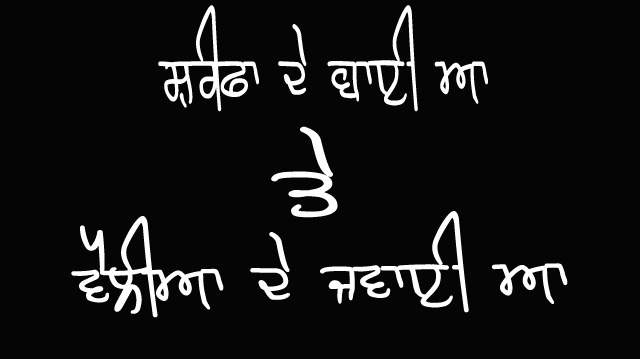 ਸ਼ਰੀਫਾ ਦੇ ਬਾਈ ਆ
ਤੇ
ਵੈਲੀਆ ਦੇ ਜਵਾਈ ਆ